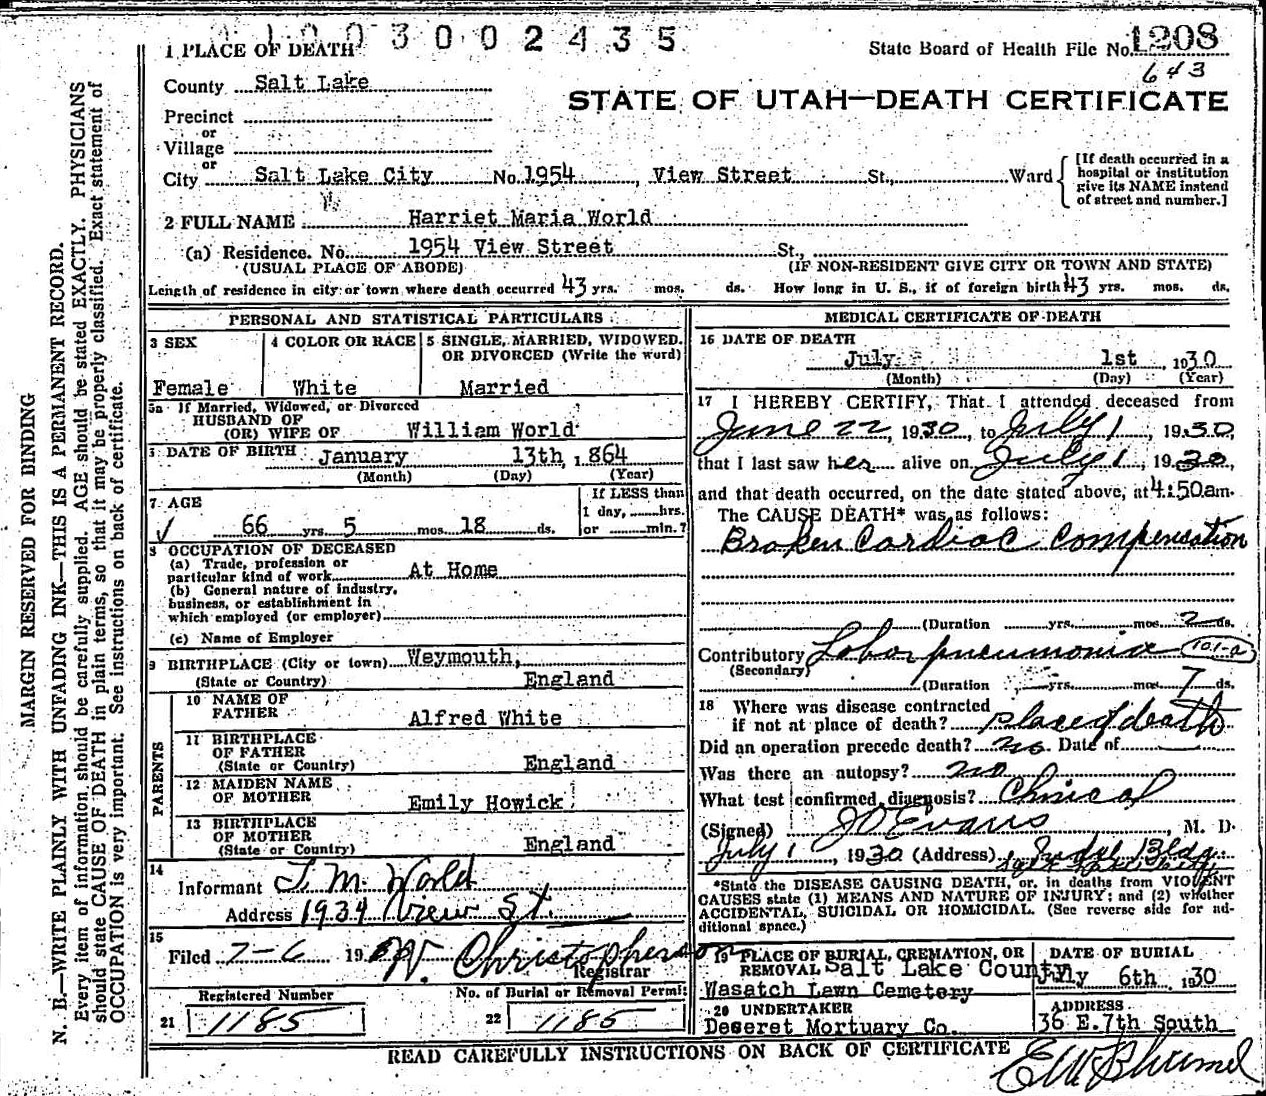 1003002435
1 PLACE OF DEATH
State Board of Health File No. 1208
643
County Salt Lake
STATE OF UTAH—DEATH CERTIFICATE
Precinct
or
Village
or
City Salt Lake City No. 1954, View Street St., Ward
[If death occurred in a
hospital or institution
give its NAME instead
of street and number.]
2 FULL NAME Harriet Maria World
W.
(a) Residence. No. 1954 View Street St.,
(USUAL PLACE OF ABODE) (IF NON-RESIDENT GIVE CITY OR TOWN AND STATE)
Length of residence in city or town where death occurred 43 yrs. mos. ds. How long in U. S., if of foreign birth 43 yrs. mos. ds.
PERSONAL AND STATISTICAL PARTICULARS
3 SEX
Female
4 COLOR OR RACE
White
5 SINGLE, MARRIED, WIDOWED.
OR DIVORCED (Write the word)
Married
5a If Married, Widowed, or Divorced
HUSBAND OF
(OR) WIFE OF William World
DATE OF BIRTH January 13th, 1864
(Month) (Day) (Year)
7 AGE
66 yrs 5 mos 18 ds.
If LESS than
1 day, hrs.
or min.?
8 OCCUPATION OF DECEASED
(a) Trade, profession or
particular kind of work At Home
(b) General nature of industry,
business, or establishment in
which employed (or employer)
(c) Name of Employer
9 BIRTHPLACE (City or town) Weymouth,
(State or Country) England
PARENTS
10 NAME OF
FATHER Alfred White
11 BIRTHPLACE
OF FATHER
(State or Country) England
12 MAIDEN NAME
OF MOTHER Emily Howick
13 BIRTHPLACE
OF MOTHER
(State or Country) England
14
Informant T. M. World
Address 1934 View St.
15
Filed 7-6 19 W. Christopherson
Registrar
Registered Number
21 1185
No. of Burial or Removal Permit
22 1185
MEDICAL CERTIFICATE OF DEATH
16 DATE OF DEATH
July 1st, 1930
(Month) (Day) (Year)
17 I HEREBY CERTIFY, That I attended deceased from
June 22, 1930, to July 1, 1930,
that I last saw her alive on July 1, 1930,
and that death occurred, on the date stated above, at 4:50am.
The CAUSE DEATH* was as follows:
Broken Cardiac Compensation
(Duration yrs. mos. 2 ds.
Contributory Lobar pneumonia 101-a
(Secondary)
(Duration yrs. mos. 7 ds.
18 Where was disease contracted
if not at place of death? place of death
Did an operation precede death? no Date of
Was there an autopsy? no
What test confirmed diagnosis? Clinical
(Signed) J D Evans, M. D.
July 1, 1930 (Address) Judge Bldg.
*State the DISEASE CAUSING DEATH, or, in deaths from VIOLENT
CAUSES state (1) MEANS AND NATURE OF INJURY; and (2) whether
ACCIDENTAL, SUICIDAL OR HOMICIDAL. (See reverse side for ad-
ditional space.)
19 PLACE OF BURIAL, CREMATION, OR
REMOVAL Salt Lake County
Wasatch Lawn Cemetery
DATE OF BURIAL
July 6th, 1930
20 UNDERTAKER
Deseret Mortuary Co.
ADDRESS
36 E. 7th South
READ CAREFULLY INSTRUCTIONS ON BACK OF CERTIFICATE
MARGIN RESERVED FOR BINDING
N. B.—WRITE PLAINLY WITH UNFADING INK—THIS IS A PERMANENT RECORD.
Every item of information should be carefully supplied. AGE should be stated EXACTLY. PHYSICIANS
should state CAUSE OF DEATH in plain terms, so that it may be properly classified. Exact statement of
OCCUPATION is very important. See instructions on back of certificate.